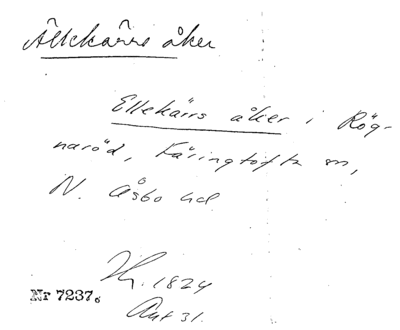 Ällekärrs åker
Ellekärrs åker i Rög-
naröd, Käringtofta sn,
N. Åsbo hd
1824
Nr 7237
Akt 31.